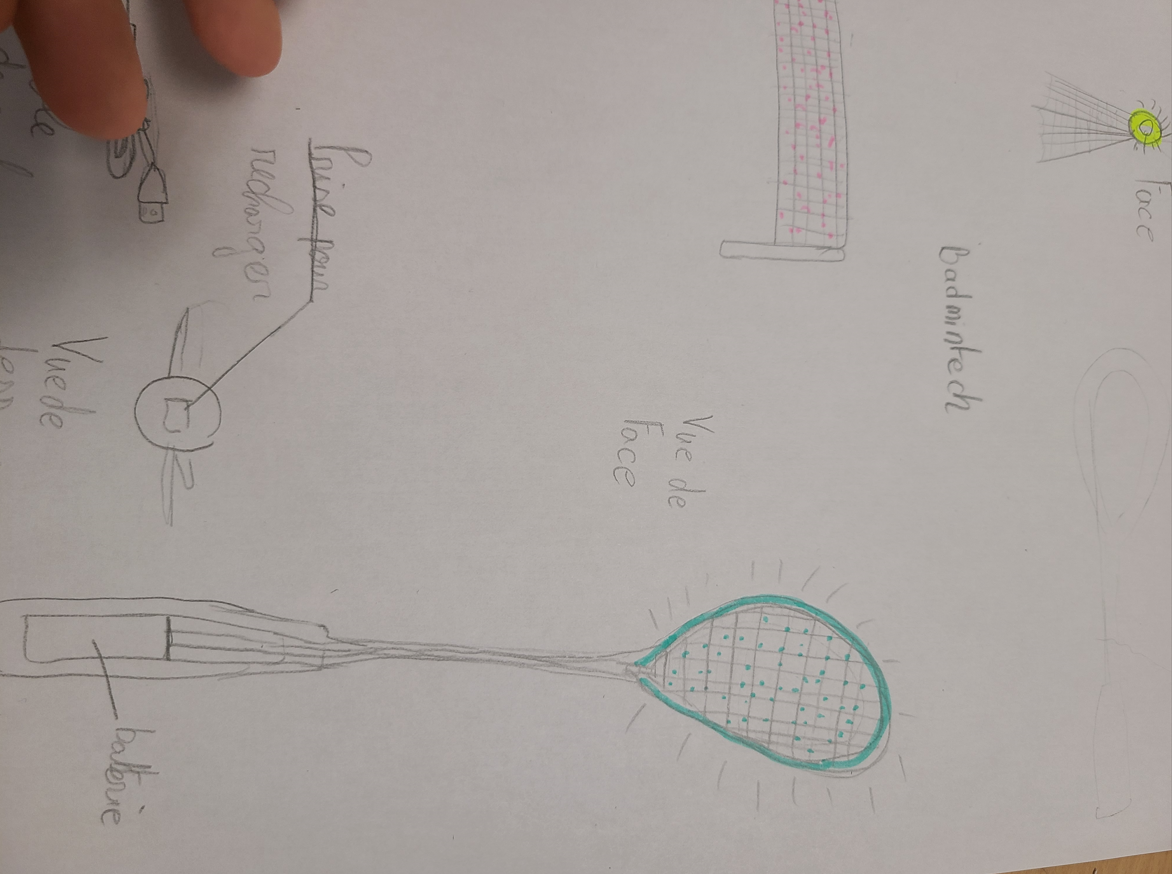 Face
Badmintech
Vue de
Face
Prise pour
recharger
Vue de
batterie